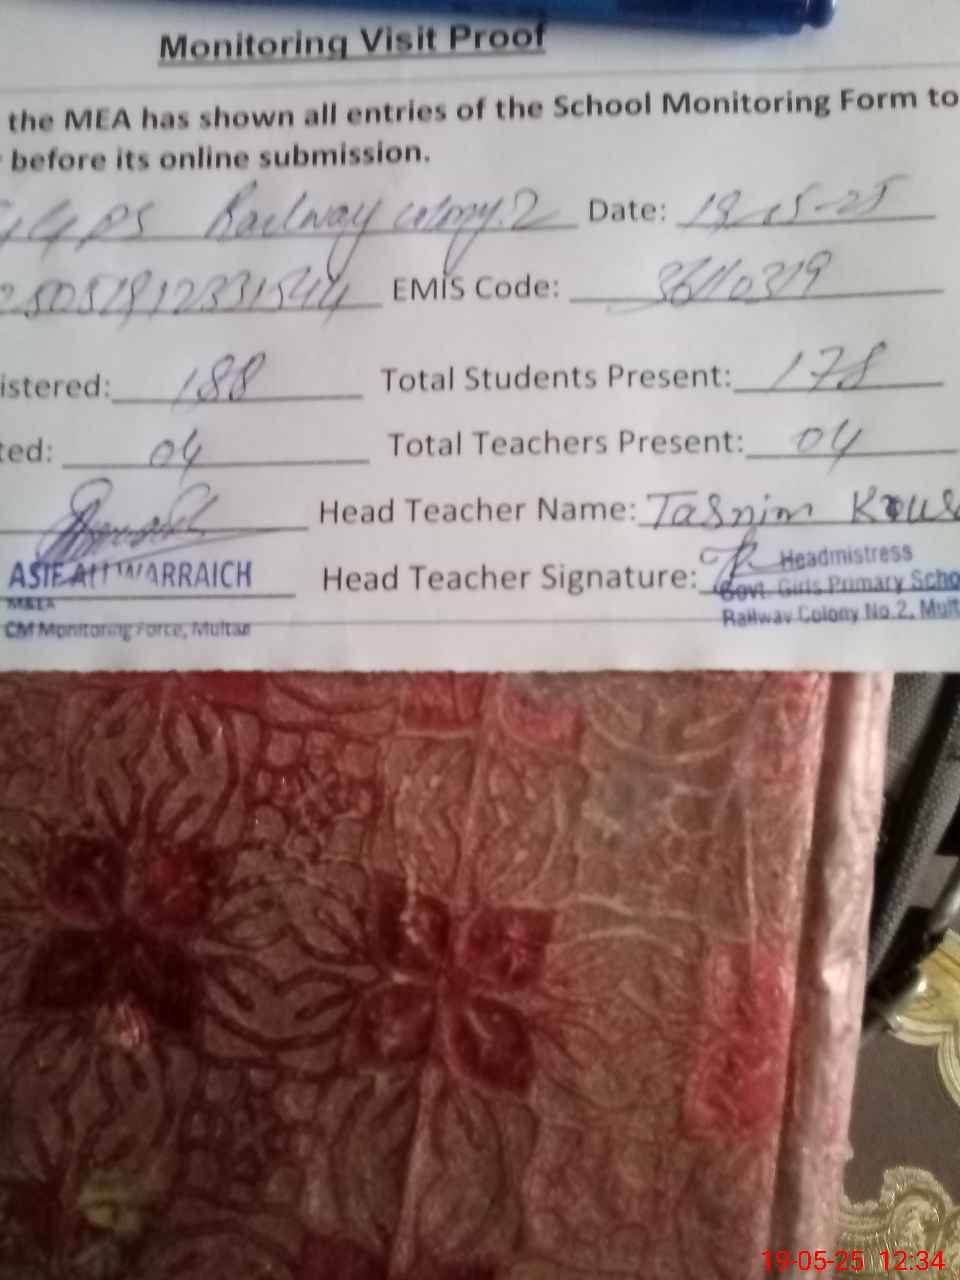 Monitoring Visit Proof
the MEA has shown all entries of the School Monitoring Form to
before its online submission.
GGPS Railway colony.2 Date: 19-05-25
EMIS Code: 36110319
istered: 188 Total Students Present: 178
ted: 04 Total Teachers Present: 04
Head Teacher Name: Tasnim Kous
ASIF ALI WARRAICH Head Teacher Signature: Headmistress
MEA Govt. Girls Primary Scho
CM Monitoring Force, Multan Railway Colony No.2, Mult
19-05-25 12:34